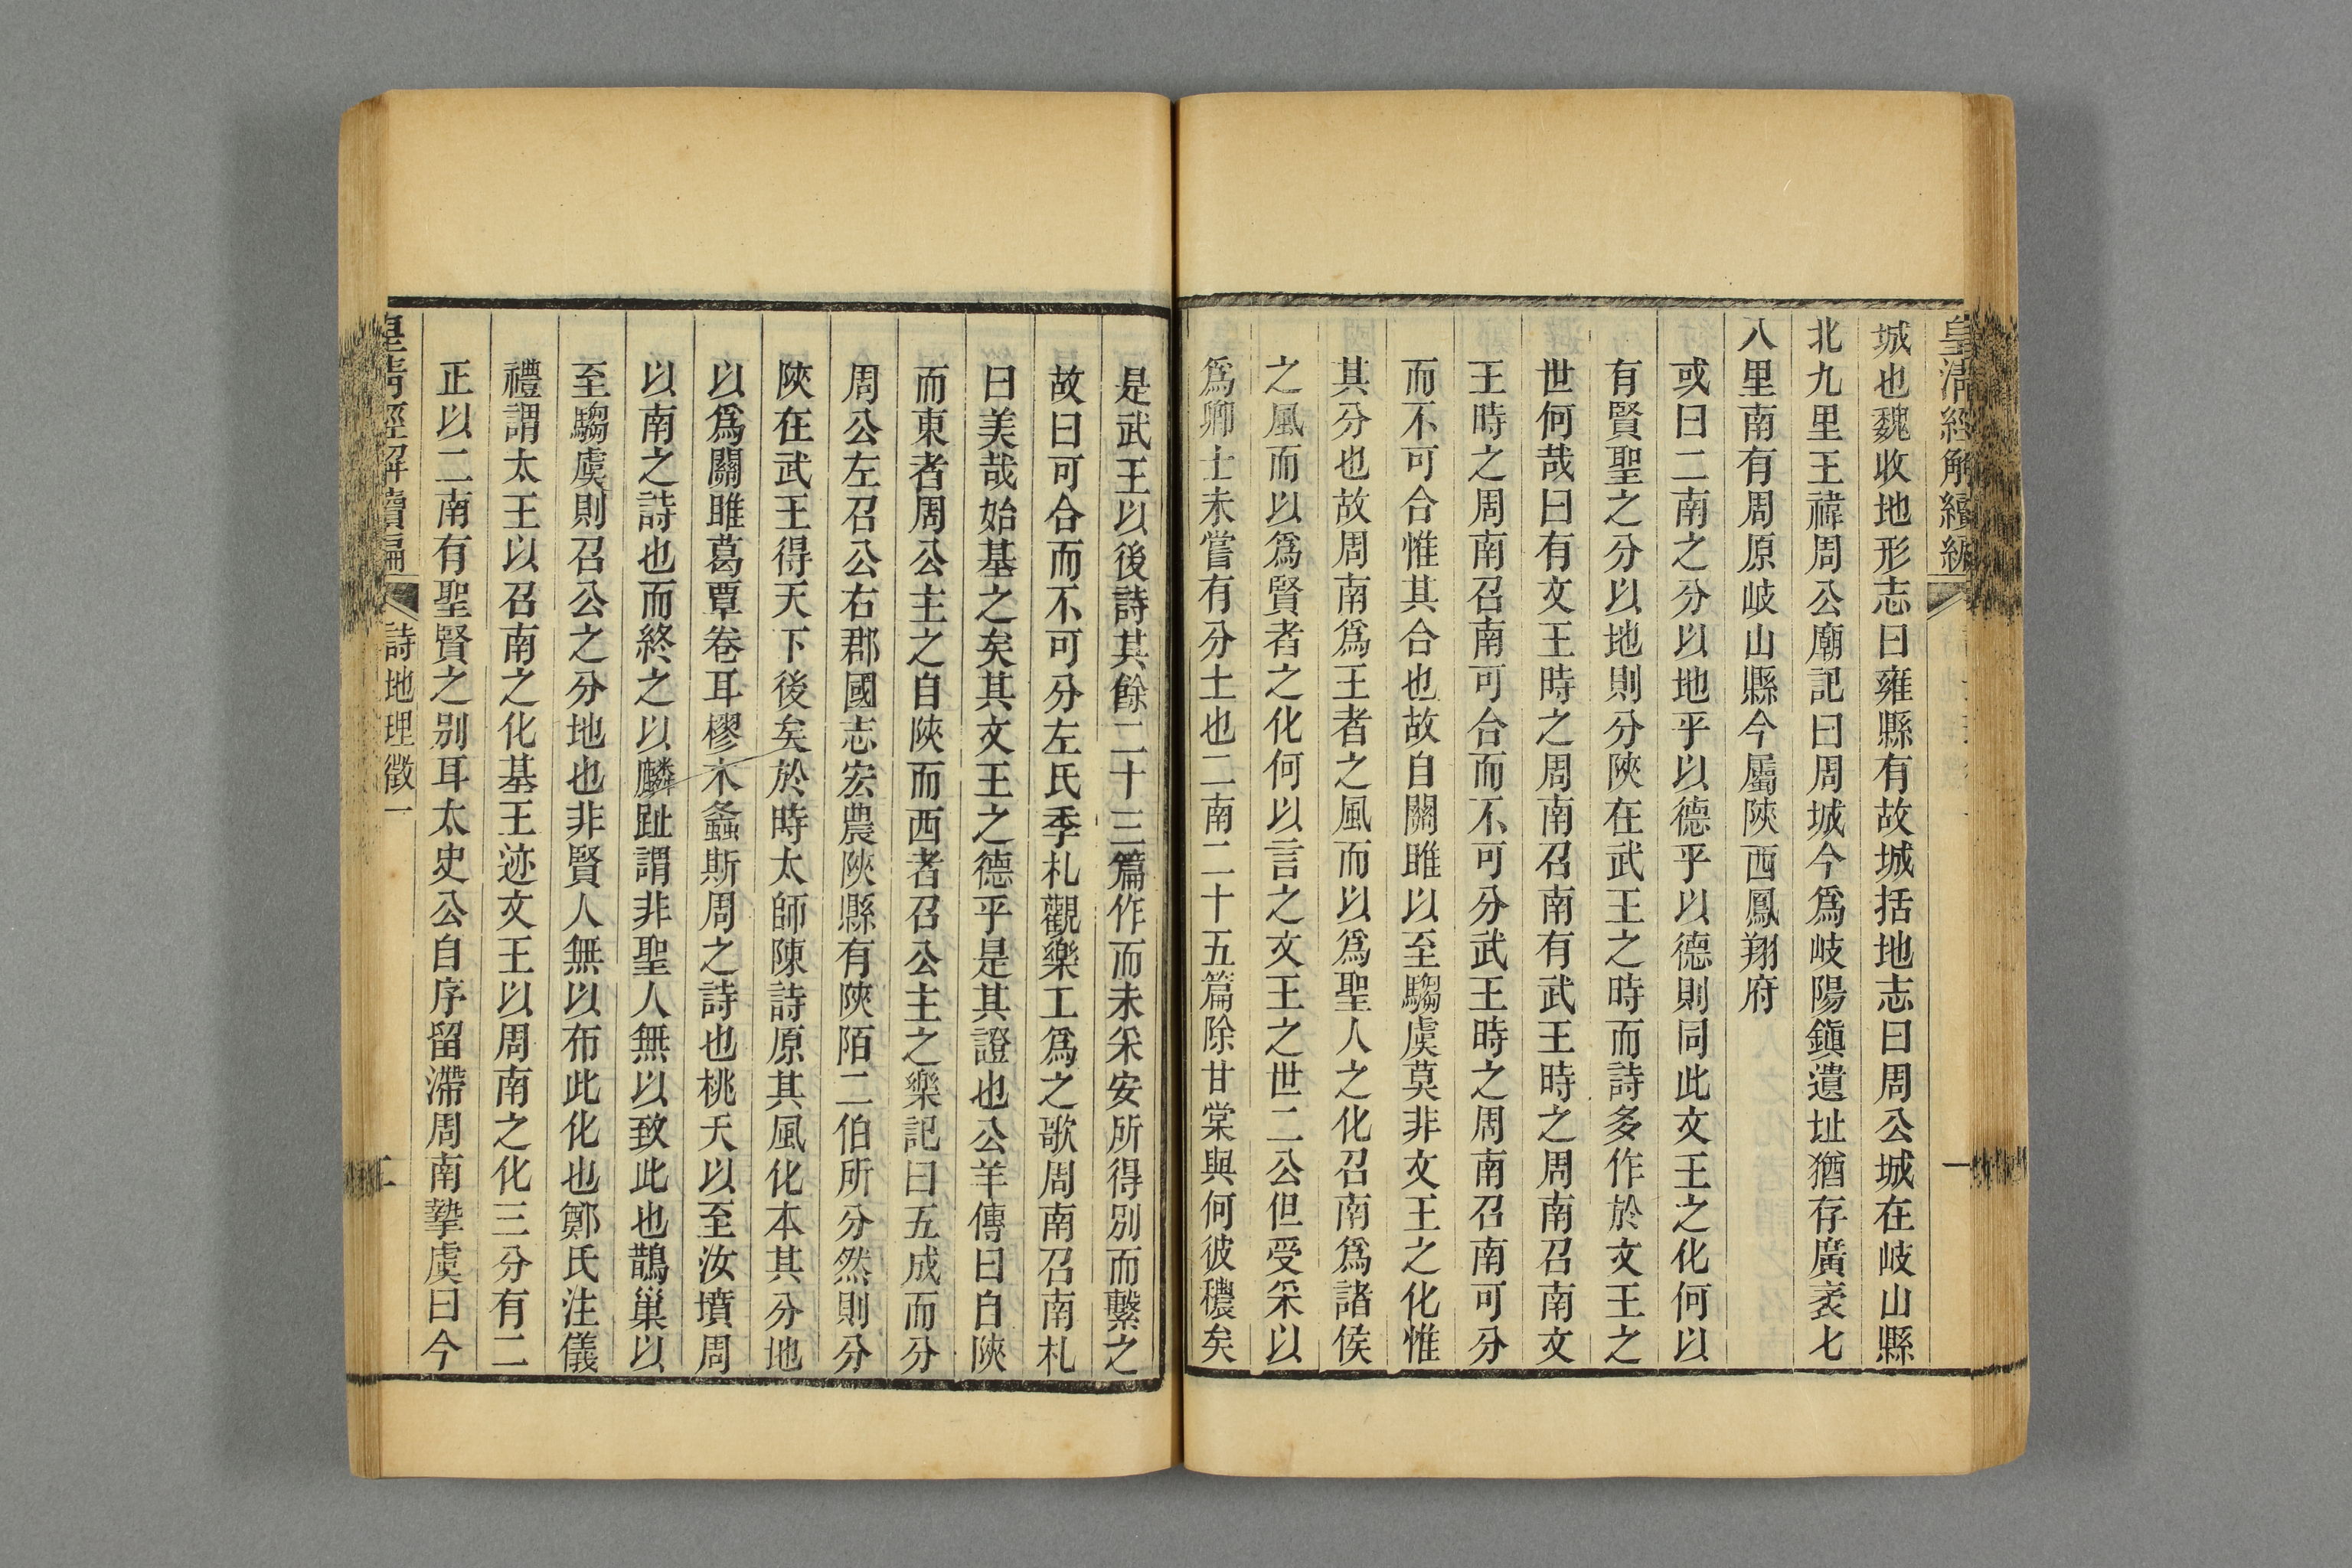 皇清經解續編
城也魏收地形志曰雍縣有故城括地志曰周公城在岐山縣
北九里王禕周公廟記曰周城今爲岐陽鎭遺址猶存廣袤七
八里南有周原岐山縣今屬陝西鳳翔府
或曰二南之分以地乎以德乎以德則同此文王之化何以
有賢聖之分以地則分陝在武王之時而詩多作於文王之
世何哉曰有文王時之周南召南有武王時之周南召南文
王時之周南召南可合而不可分武王時之周南召南可分
而不可合惟其合也故自關雎以至騶虞莫非文王之化惟
其分也故周南爲王者之風而以爲聖人之化召南爲諸侯
之風而以爲賢者之化何以言之文王之世二公但受采以
爲卿士未嘗有分土也二南二十五篇除甘棠與何彼穠矣
是武王以後詩其餘二十三篇作而未采安所得別而繫之
故曰可合而不可分左氏季札觀樂工爲之歌周南召南札
曰美哉始基之矣其文王之德乎是其證也公羊傳曰自陝
而東者周公主之自陝而西者召公主之樂記曰五成而分
周公左召公右郡國志宏農陝縣有陝陌二伯所分然則分
陝在武王得天下後矣於時太師陳詩原其風化本其分地
以爲關雎葛覃卷耳樛木螽斯周之詩也桃夭以至汝墳周
以南之詩也而終之以麟趾謂非聖人無以致此也鵲巢以
至騶虞則召公之分地也非賢人無以布此化也鄭氏注儀
禮謂太王以召南之化基王迹文王以周南之化三分有二
正以二南有聖賢之別耳太史公自序留滯周南摯虞曰今
皇清經解續編
詩地理徵一